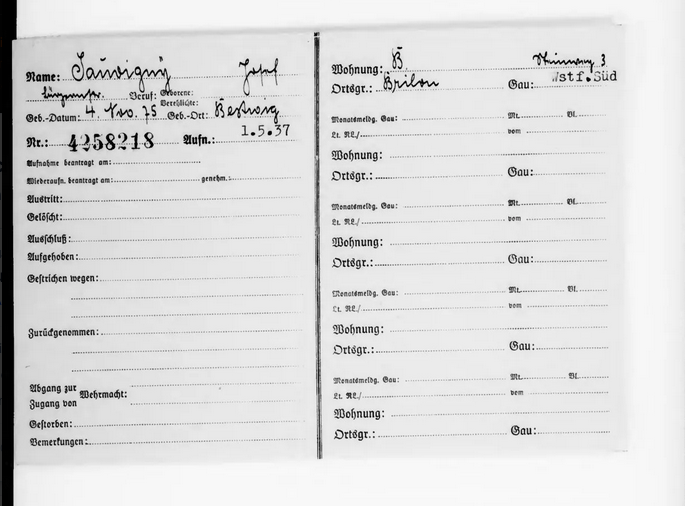 Name: Sauvigny Josef
Bürgermstr. Beruf: Geborene:
Verehlichte:
Geb.-Datum: 4. Nov. 75 Geb.-Ort: Bestwig
Nr.: 4258218 Aufn.: 1.5.37
Aufnahme beantragt am:
Wiederaufn. beantragt am: genehm.:
Austritt:
Gelöscht:
Ausschluß:
Aufgehoben:
Gestrichen wegen:
Zurückgenommen:
Abgang zur
Wehrmacht:
Zugang von
Gestorben:
Bemerkungen:
Wohnung: B. Steinweg 3
Ortsgr.: Brilon Gau: Wstf.Süd
Monatsmeldg. Gau: Mt. Bl.
Lt. RL./ vom
Wohnung:
Ortsgr.: Gau:
Monatsmeldg. Gau: Mt. Bl.
Lt. RL./ vom
Wohnung:
Ortsgr.: Gau:
Monatsmeldg. Gau: Mt. Bl.
Lt. RL./ vom
Wohnung:
Ortsgr.: Gau:
Monatsmeldg. Gau: Mt. Bl.
Lt. RL./ vom
Wohnung:
Ortsgr.: Gau: